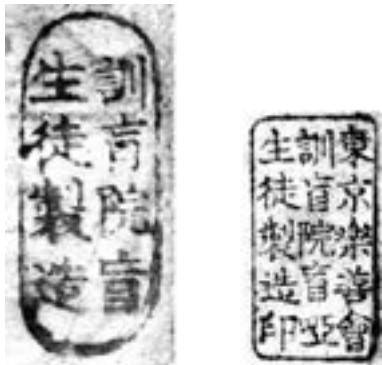 訓盲院盲
生徒製造
東京楽善會
訓盲院盲啞
生徒製造印